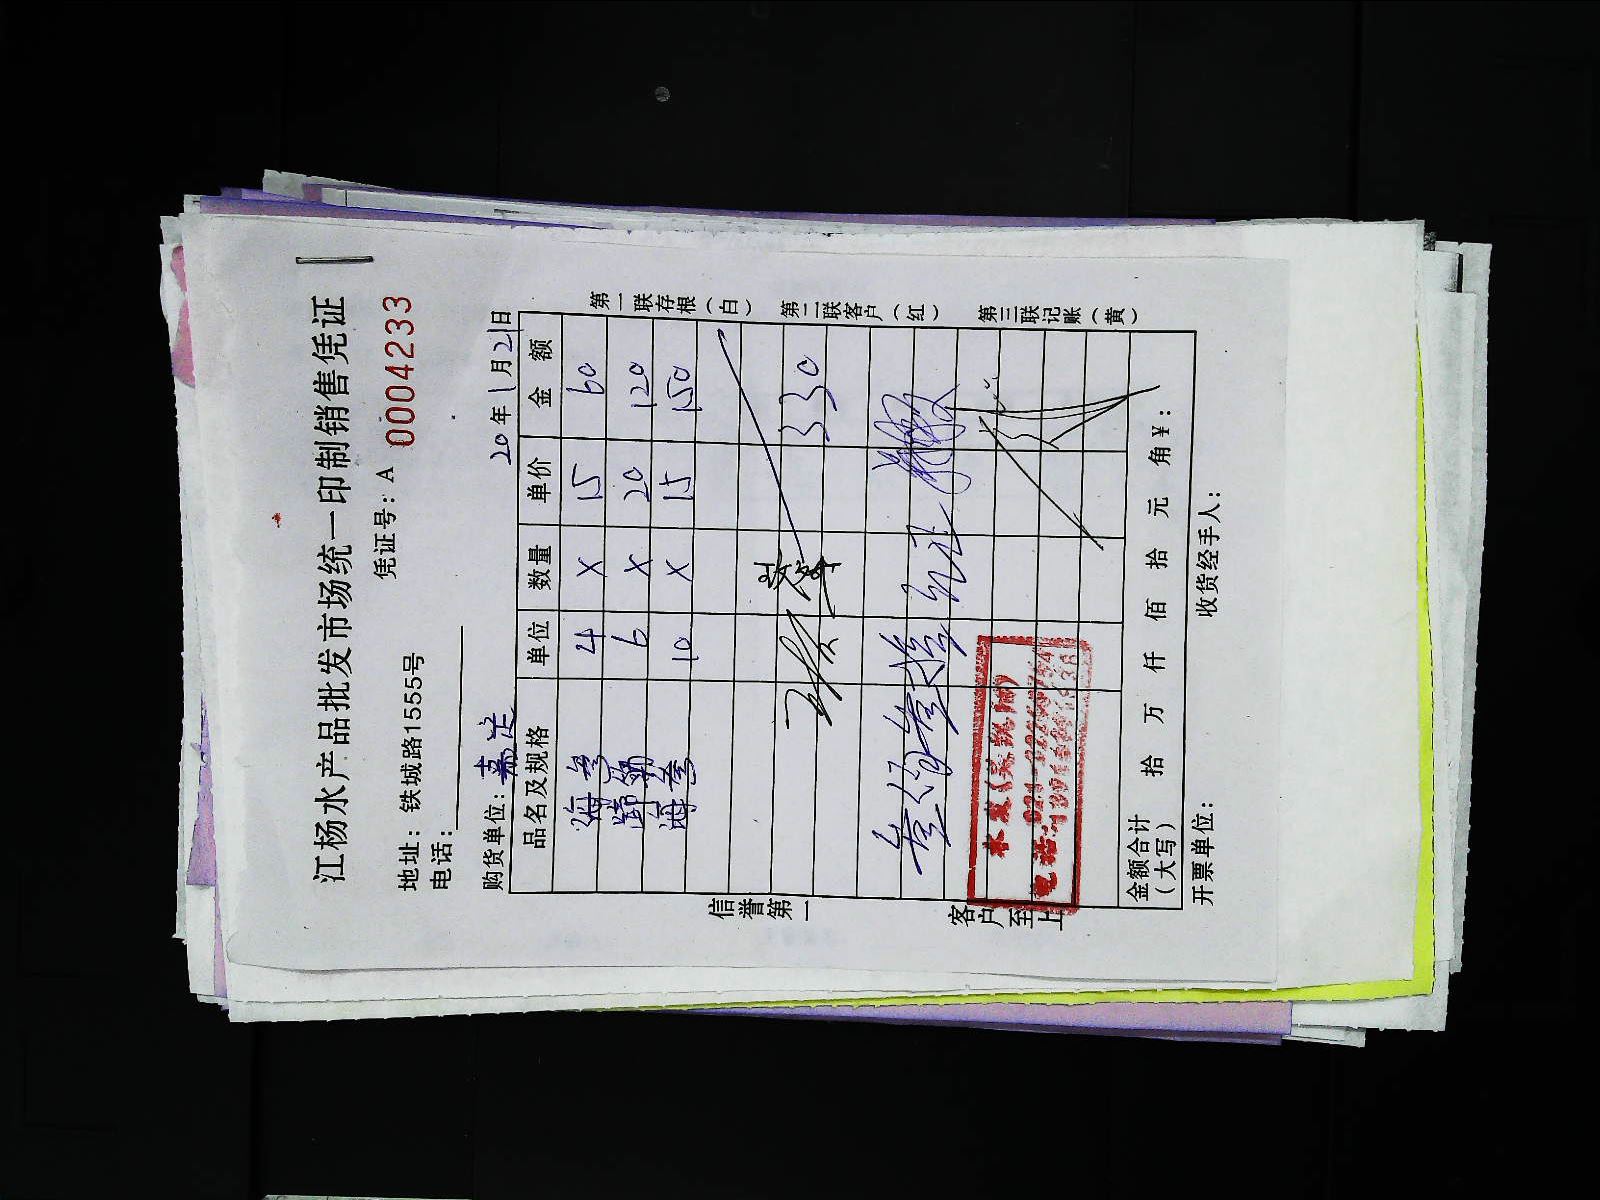 江杨水产品批发市场统一印制销售凭证
凭证号：A 0004233
地址：铁城路1555号
电话：
购货单位： 20 年 1 月 21 日
品名及规格 单位 数量 单价 金额
海参 4 X 15 60
6 X 20 120
海 10 X 15 150
330
叁佰叁拾元正
电话：021
金额合计（大写） 拾 万 仟 佰 拾 元 角 ¥：
开票单位： 收货经手人：
第一联存根（白）
第二联客户（红）
第三联记账（黄）
信誉第一
客户至上